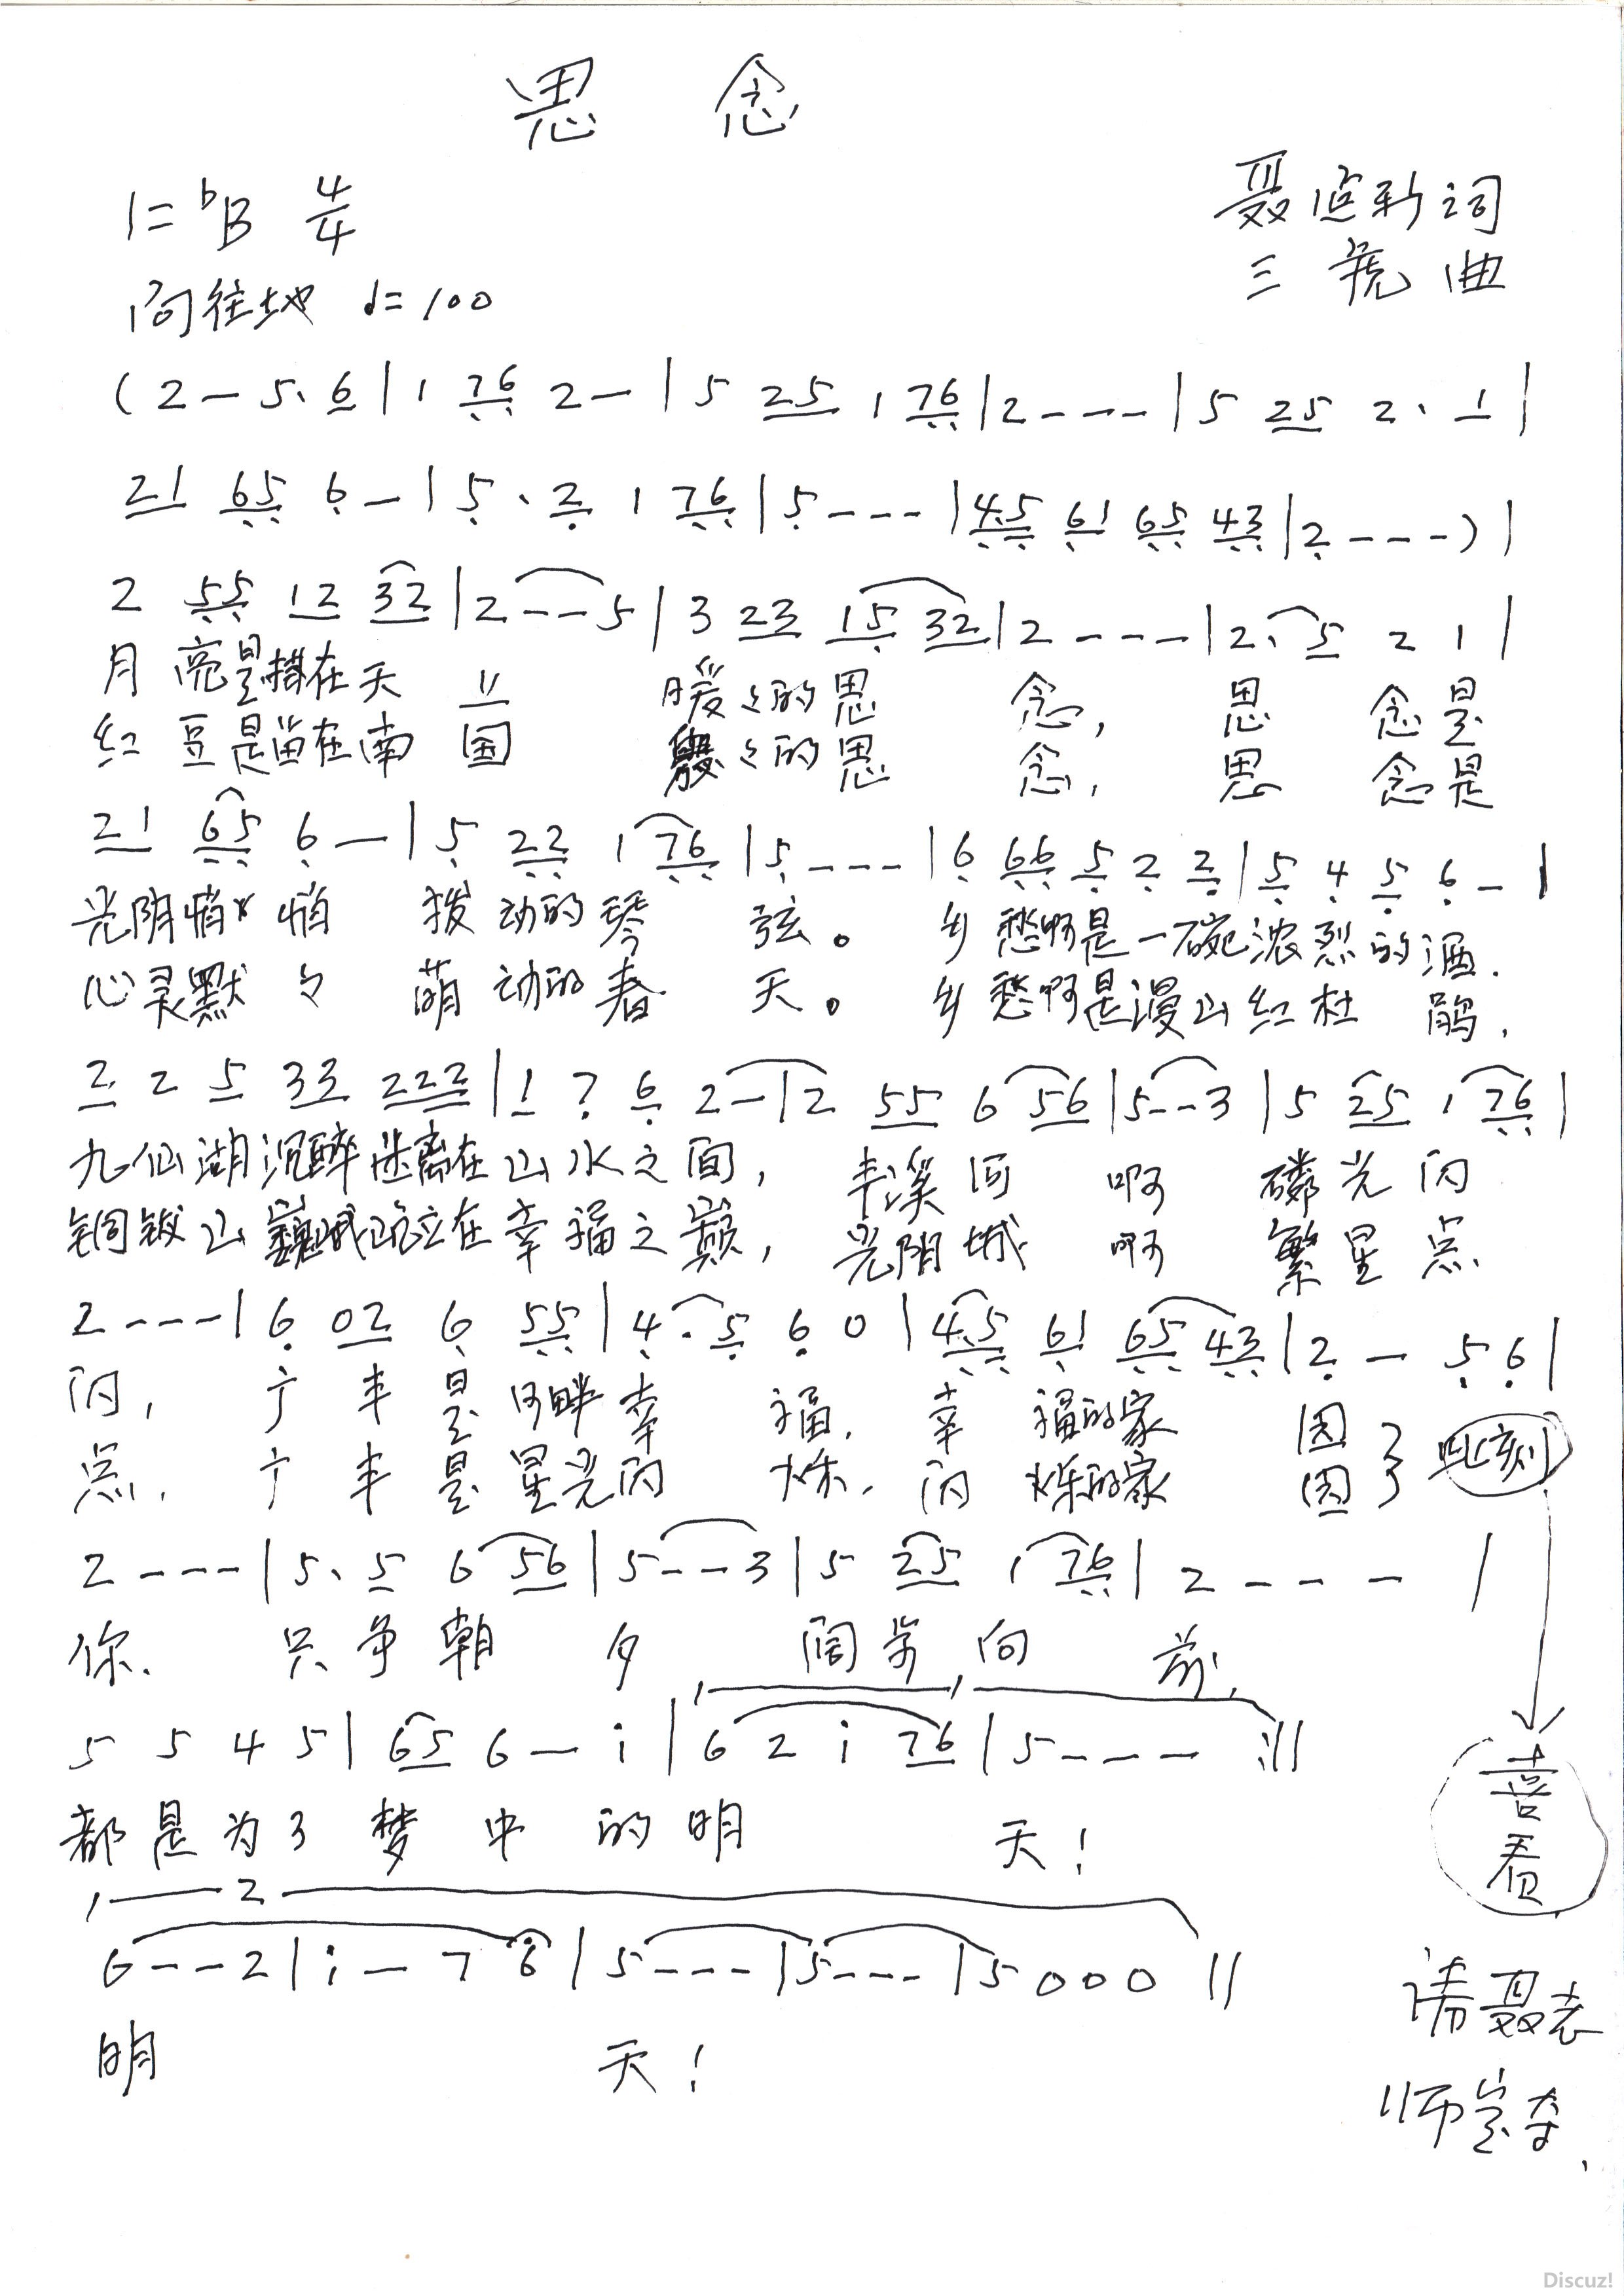 思 念
1=ᵇB 4/4
聂造新词
向往地 ♩=100
三彪曲
(2 — 5. 6 | 1 76 2 — | 5 25 1 76 | 2 - - - | 5 25 2. 1 |
21 65 6 — | 5. 2 1 76 | 5 - - - | 45 61 65 43 | 2 - - - ) |
2 55 12 32 | 2 - - 5 | 3 23 15 32 | 2 - - - | 2. 5 2 1 |
月亮是挂在天上 暖々的思念, 思念是
红豆是留在南国 々的思念, 思念是
21 65 6 — | 5 22 1 76 | 5 - - - | 6 66 5 2 2 | 5 4 5 6 - |
光阴悄悄 拨动的琴弦。 乡愁啊是一碗浓烈的酒.
心灵默々 萌动的春天。 乡愁啊是漫山红杜鹃,
2 2 5 33 222 | 1 7 6 2 - | 2 55 6 56 | 5 - - 3 | 5 25 1 76 |
九仙湖沉醉迷离在山水之间, 丰溪河啊 磷光闪
铜钹山巍峨屹立在幸福之巅, 光阴城啊 繁星点
2 - - - | 6 02 6 55 | 4. 5 6 0 | 45 61 65 43 | 2 — 5 6 |
闪, 广丰是河畔幸福, 幸福的家 因了此刻
点. 广丰是星光闪烁, 闪烁的家 因了
2 - - - | 5. 5 6 56 | 5 - - 3 | 5 25 1 76 | 2 - - - |
你. 只争朝夕 阔步向前,
5 5 4 5 | 65 6 — i | 6 2 i 76 | 5 - - - :||
都是为了梦中的明 天!
喜看
2
6 - - 2 | i — 7 6 | 5 - - - | 5 - - - | 5 0 0 0 ||
明 天!
请聂老
师定夺.
Discuz!